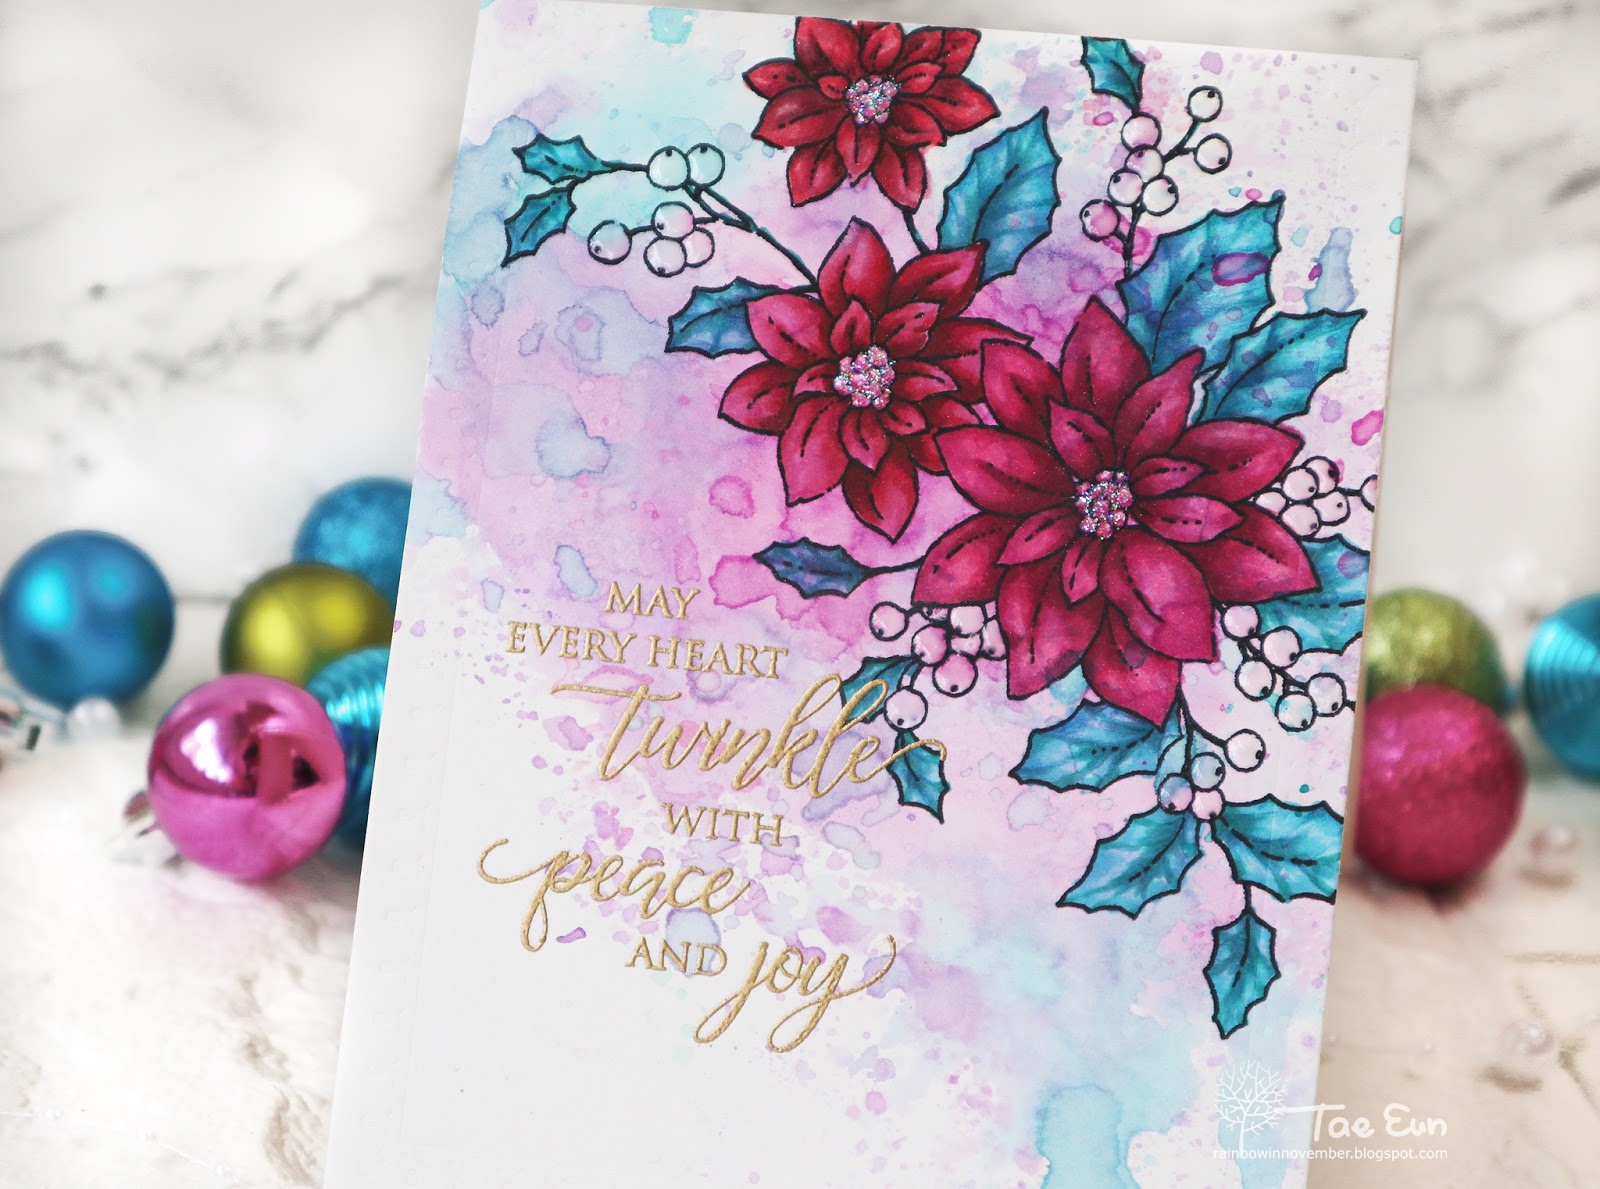 MAY
EVERY HEART
twinkle
WITH
peace
AND joy
Tae Eun
rainbowinnovember.blogspot.com